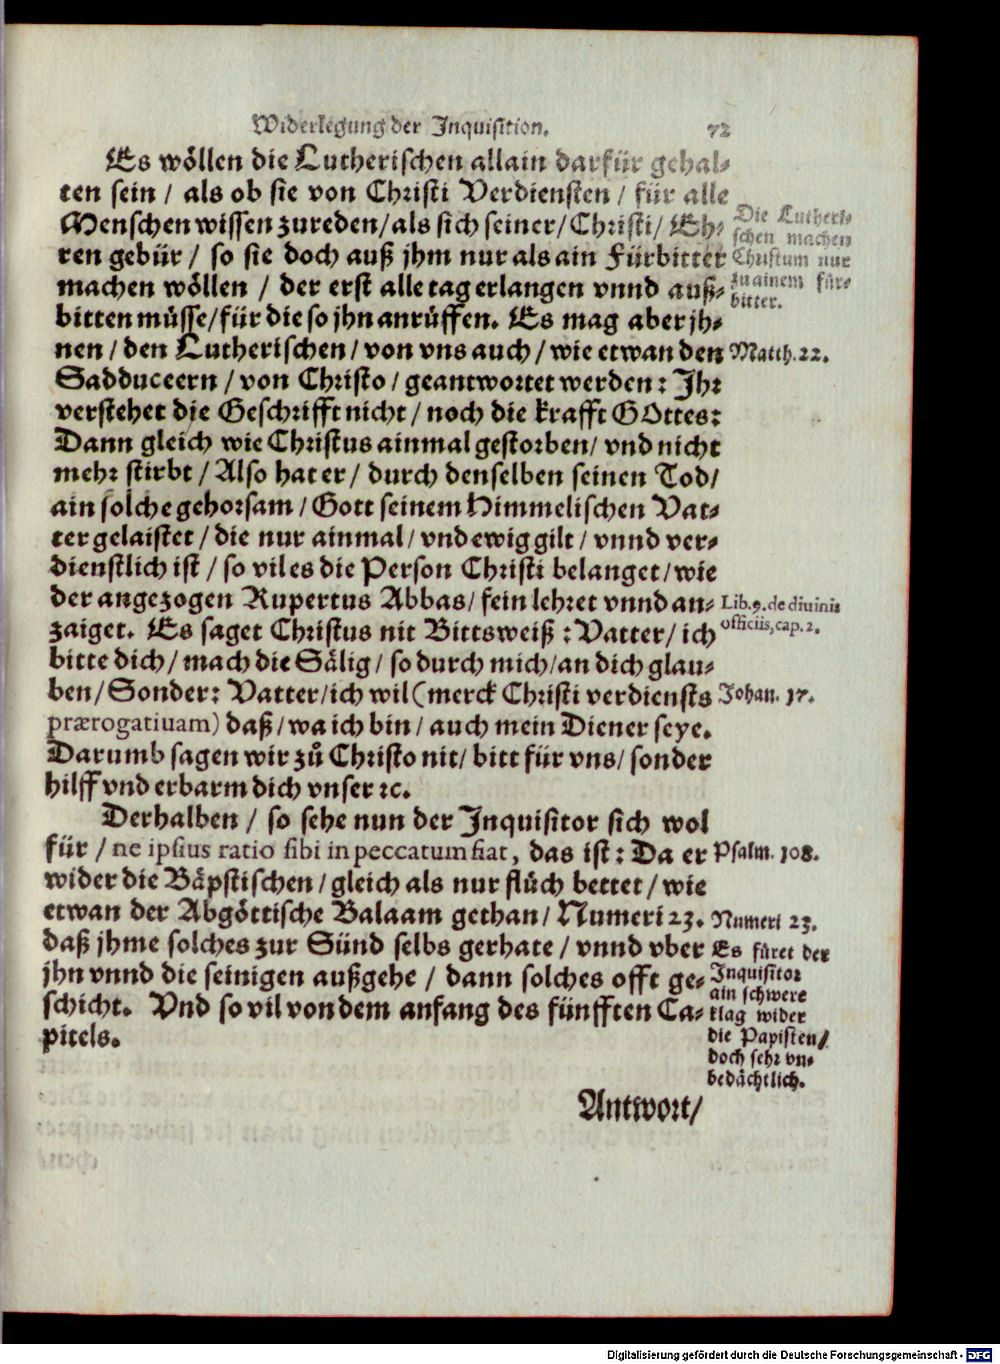 Widerlegung der Inquisition. 72
Es wöllen die Lutherischen allain darfür gehal-
ten sein / als ob sie von Christi Verdiensten / für alle
Menschen wissen zureden / als sich seiner / Christi / Eh-
ren gebür / so sie doch auß jhm nur als ain Fürbitter
machen wöllen / der erst alle tag erlangen vnnd auß-
bitten müsse / für die so jhn anrüffen. Es mag aber jh-
nen / den Lutherischen / von vns auch / wie etwan den
Sadduceern / von Christo / geantwortet werden: Jhr
verstehet die Geschrifft nicht / noch die krafft GOttes:
Dann gleich wie Christus ainmal gestorben / vnd nicht
mehr stirbt / Also hat er / durch denselben seinen Tod /
ain solche gehorsam / Gott seinem Himmelischen Vat-
ter gelaistet / die nur ainmal / vnd ewig gilt / vnnd ver-
dienstlich ist / so vil es die Person Christi belanget / wie
der angezogen Rupertus Abbas / fein lehret vnnd an-
zaiget. Es saget Christus nit Bittsweiß: Vatter / ich
bitte dich / mach die Sälig / so durch mich / an dich glau-
ben / Sonder: Vatter / ich wil (merck Christi verdiensts
prærogatiuam) daß / wa ich bin / auch mein Diener seye.
Darumb sagen wir zů Christo nit / bitt für vns / sonder
hilff vnd erbarm dich vnser ꝛc.
Derhalben / so sehe nun der Inquisitor sich wol
für / ne ipsius ratio sibi in peccatum fiat, das ist: Da er
wider die Bäpstischen / gleich als nur flůch bettet / wie
etwan der Abgöttische Balaam gethan / Numeri 23.
daß jhme solches zur Sünd selbs gerhate / vnnd vber
jhn vnnd die seinigen außgehe / dann solches offt ge-
schicht. Vnd so vil von dem anfang des fünfften Ca-
pitels.
Antwort /
Die Lutheri-
schen machen
Christum nur
zu ainem für-
bitter.
Matth. 22.
Lib. 9. de diuinis
officiis, cap. 2.
Johan. 17.
Psalm. 108.
Numeri 23.
Es füret der
Inquisitor
ain schwere
klag wider
die Papisten /
doch sehr vn-
bedächtlich.
Digitalisierung gefördert durch die Deutsche Forschungsgemeinschaft - DFG